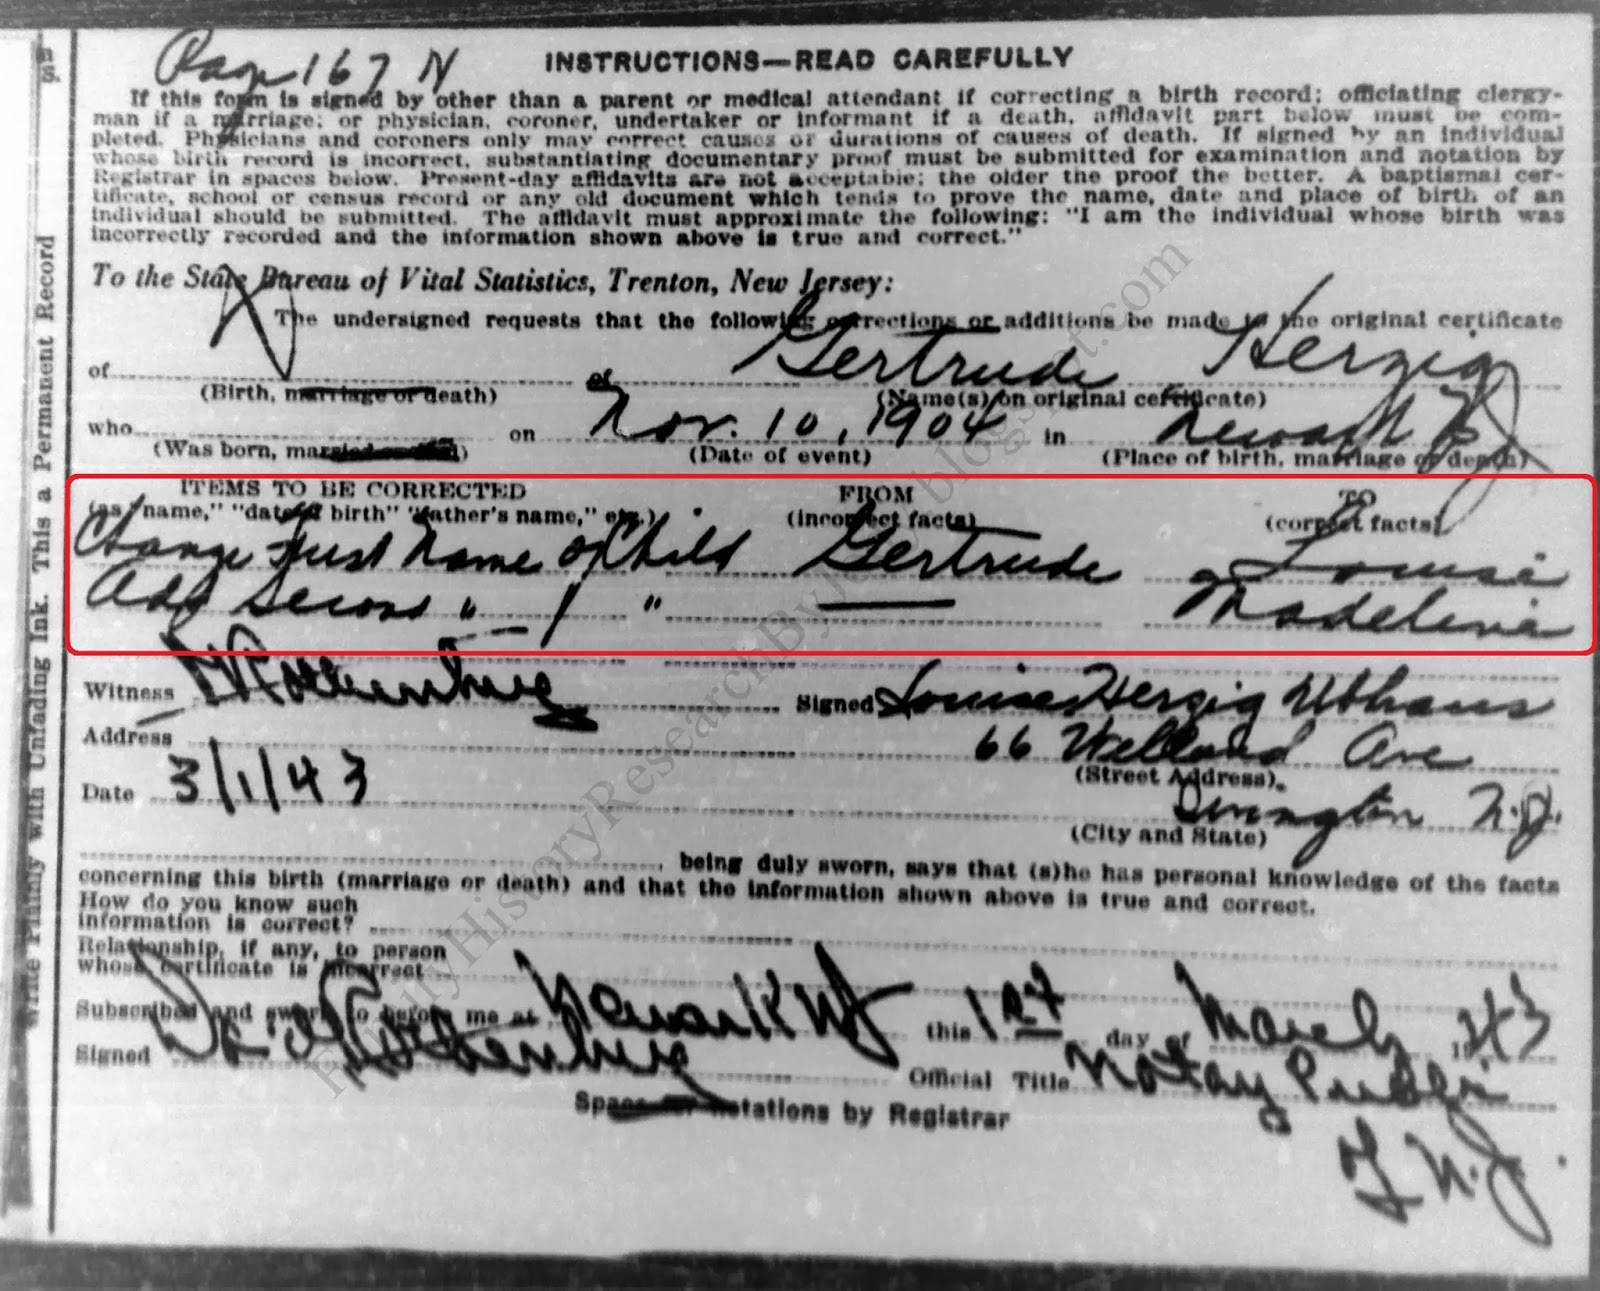 Page 167 N
INSTRUCTIONS—READ CAREFULLY
If this form is signed by other than a parent or medical attendant if correcting a birth record; officiating clergy-
man if a marriage; or physician, coroner, undertaker or informant if a death, affidavit part below must be com-
pleted. Physicians and coroners only may correct causes or durations of causes of death. If signed by an individual
whose birth record is incorrect, substantiating documentary proof must be submitted for examination and notation by
Registrar in spaces below. Present-day affidavits are not acceptable; the older the proof the better. A baptismal cer-
tificate, school or census record or any old document which tends to prove the name, date and place of birth of an
individual should be submitted. The affidavit must approximate the following: "I am the individual whose birth was
incorrectly recorded and the information shown above is true and correct."
To the State Bureau of Vital Statistics, Trenton, New Jersey:
The undersigned requests that the following corrections or additions be made to the original certificate
of of Gertrude Herzig
(Birth, marriage or death) (Name(s) on original certificate)
who on Nov. 10, 1904 in Newark NJ
(Was born, married or died) (Date of event) (Place of birth, marriage or death)
ITEMS TO BE CORRECTED FROM TO
(as "name," "date of birth" "father's name," etc.) (incorrect facts) (correct facts)
Change First Name of Child Gertrude Louise
Add Second " / " — Madeline
Witness Signed Louise Herzig
Address 66 Welland Ave
(Street Address)
Date 3/1/43 Irvington N.J.
(City and State)
being duly sworn, says that (s)he has personal knowledge of the facts
concerning this birth (marriage or death) and that the information shown above is true and correct.
How do you know such
information is correct?
Relationship, if any, to person
whose certificate is incorrect
Subscribed and sworn to before me at Newark NJ this 1st day of March 1943
Signed Official Title Notary Public
Space for notations by Registrar
N.J.
Write Plainly with Unfading Ink. This a Permanent Record
FamilyHistoryResearchByJody.blogspot.com